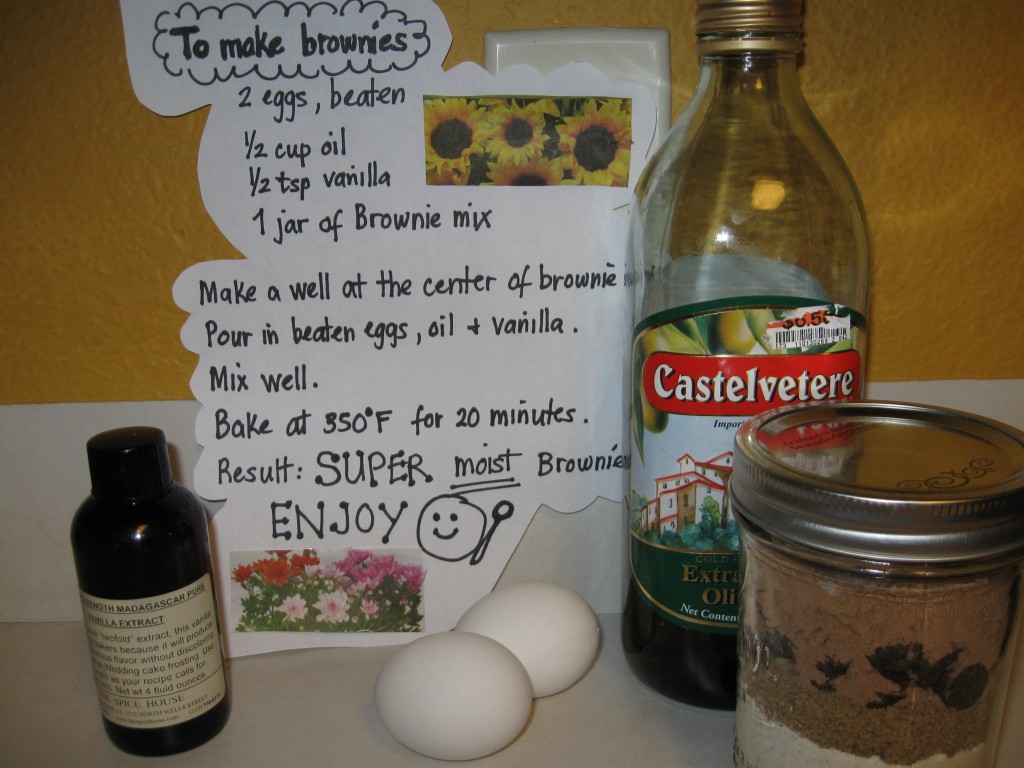 To make brownies
2 eggs, beaten
1/2 cup oil
1/2 tsp vanilla
1 jar of Brownie mix
Make a well at the center of brownie
Pour in beaten eggs, oil + vanilla.
Mix well.
Bake at 350°F for 20 minutes.
Result: SUPER moist Brownie
ENJOY
Castelvetere
Impor
Extra
Oli
Net Conten
STRENGTH MADAGASCAR PURE
VANILLA EXTRACT
"twofold" extract, this vanilla
because it will produce
flavor without discoloring
Wedding cake frosting. Use
as your recipe calls for
Net wt 4 fluid ounces
SPICE HOUSE
NORTH WELLS STREET